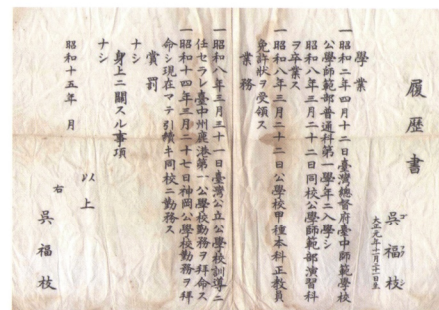 履歴書
呉福枝
ゴフクシ
大正元年十月二十一日生
學業
一昭和二年四月十二日臺灣總督府臺中師範學校
公學師範部普通科第一學年ニ入學シ
昭和八年三月二十二日同校公學師範部演習科
ヲ卒業ス
一昭和八年三月二十二日公學校甲種本科正教員
免許狀ヲ受領ス
業務
一昭和八年三月三十一日臺灣公立公學校訓導ニ
任セラレ臺中州鹿港第一公學校勤務ヲ拜命ス
一昭和十四年三月二十七日神岡公學校勤務ヲ拜
命シ現在マテ引續キ同校ニ勤務ス
賞罰
ナシ
身上ニ關スル事項
ナシ
以上
昭和十五年 月
右
呉福枝